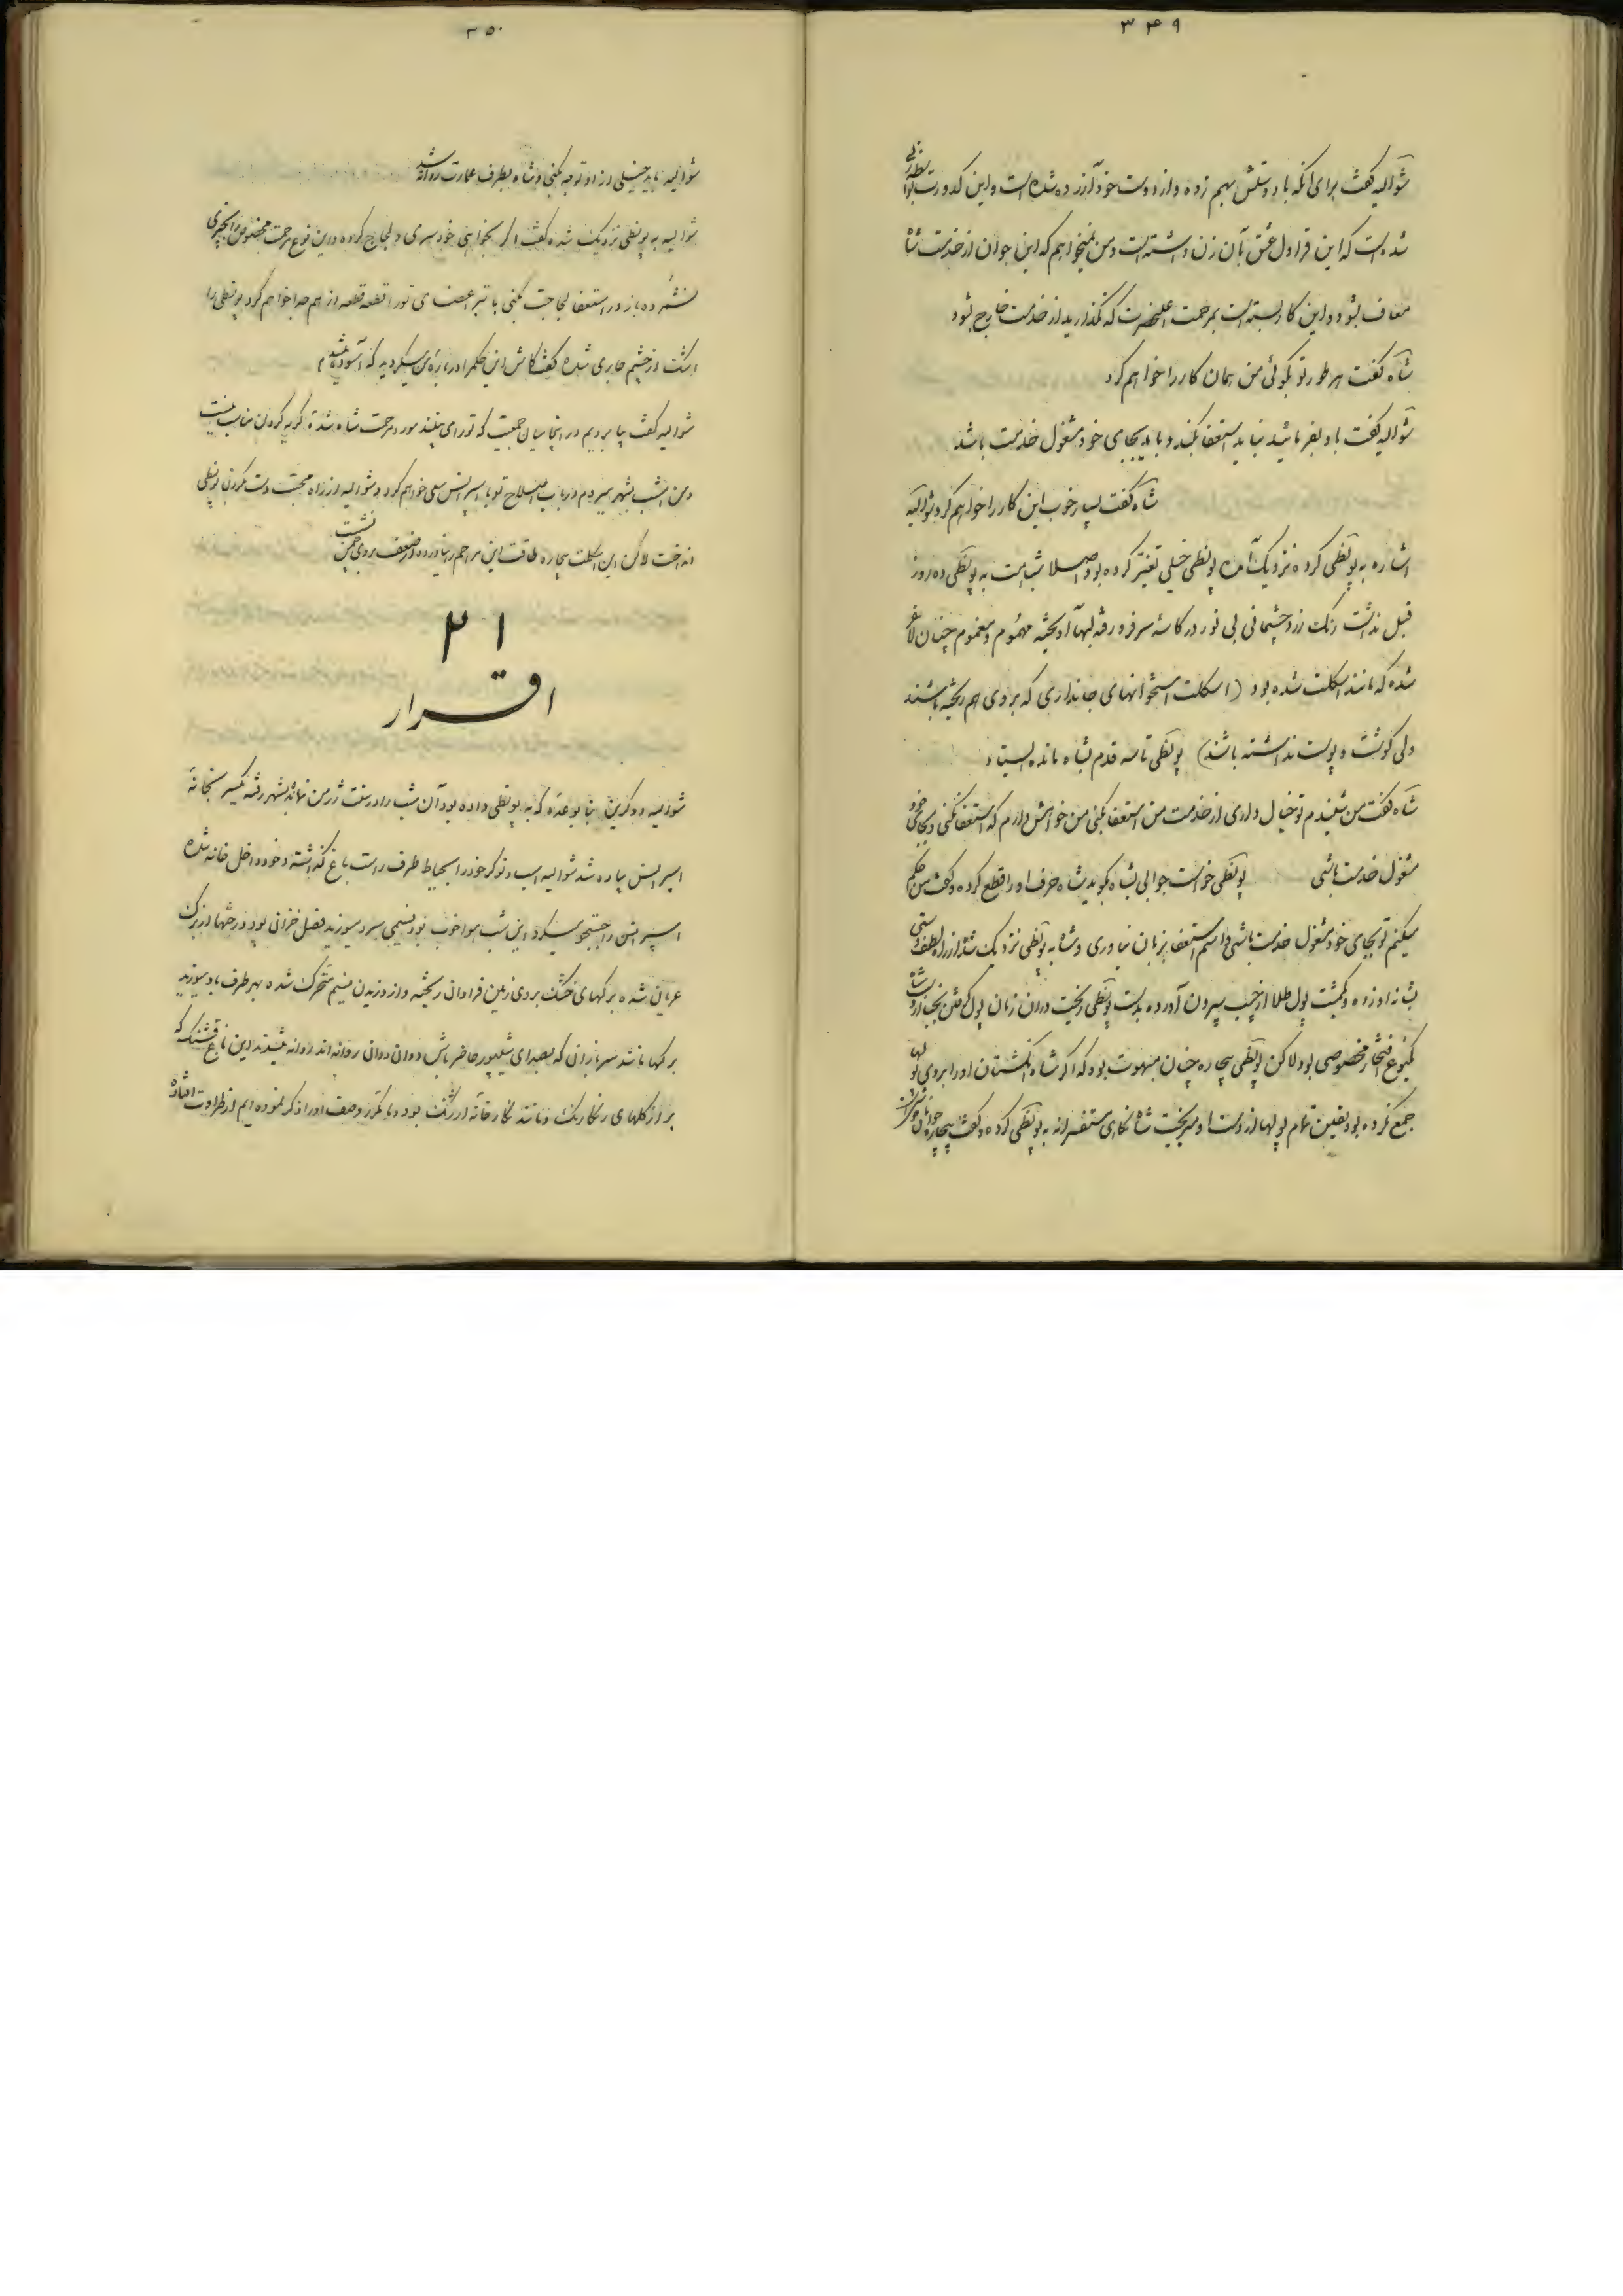 ۳۴۹
شوالیه گفت برای آنکه با دوستش بهم زده و از دوست خود آزرده شده است و این کدورت بواسطه
شده است که این قراول عشق بآن زن داشته است و من نمیخواهم که این جوان از خدمت شاه
معاف بشود و این کار بسته است بمرحمت اعلیحضرت که نگذارید از خدمت خارج شود
شاه گفت هر طور تو بگوئی من همان کار را خواهم کرد
شوالیه گفت باو بفرمائید نباید استعفا بکند و باید بجای خود مشغول خدمت باشد
شاه گفت بسیار خوب این کار را خواهم کرد شوالیه
اشاره به بونطی کرده نزدیک آمد بونطی خیلی تغییر کرده بود اصلا شباهت به بونطی ده روز
قبل نداشت رنگ زرد چشمانی بی نور در کاسه سر فرو رفته لبها آویخته مهموم و مغموم چنان لاغر
شده که مانند اسکلت شده بود (اسکلت استخوانهای جانداری که بروی هم ریخته باشند
ولی گوشت و پوست نداشته باشد) بونطی تا سه قدم بشاه مانده ایستاد
شاه گفت من شنیدم تو خیال داری از خدمت من استعفا بکنی من خواهش دارم که استعفا نکنی و بجای خود
مشغول خدمت باشی بونطی خواست جوابی بشاه بگوید شاه حرف او را قطع کرده و گفت من حکم
میکنم تو بجای خود مشغول خدمت باشی و اسم استعفا بزبان نیاوری و شاه به بونطی نزدیک شد از راه لطف دستی
بشانه او زده و یکمشت پول طلا از جیب بیرون آورده بدست بونطی ریخت در آن زمان پول گرفتن نجبا از دست شاه
یکنوع افتخار مخصوصی بود لاکن بونطی بیچاره چنان مبهوت بود که اگر شاه انگشتان او را بروی پولها
جمع نکرده بود یقین تمام پولها از دست او میریخت شاه نگاهی مستفسرانه به بونطی کرده و گفت بیچاره جوان
۳۵۰
شوالیه باید خیلی از او توجه بکنی و شاه بطرف عمارت روانه شد
شوالیه به بونطی نزدیک شده گفت اگر بخواهی خودسری و لجاج کرده و این نوع مرحمت مخصوص را بچیزی
نشمرده باز در استعفا لجاجت بکنی با تبر اعضای تو را قطعه قطعه از هم جدا خواهم کرد بونطی را
اشک از چشم جاری شده گفت کاش این حکم را درباره من میکردید که آسوده میشدم
شوالیه گفت بیا برویم در اینجا میان جمعیت که تو را می‌بینند مورد مرحمت شاه شده گریه کردن مناسب نیست
و من امشب بشهر میروم در باب اصلاح تو با اسپرانس سعی خواهم کرد و شوالیه از راه محبت دست بگردن بونطی
انداخت لاکن این اسکلت بیچاره طاقت این مراحم را نیاورده از ضعف بروی چمن نشست
۲۱
اقرار
شوالیه دوکرین بنا بوعده که به بونطی داده بود آن شب را در سنت ژرمن نماند بشهر رفته یکسر بخانه
اسپرانس پیاده شد شوالیه اسب و نوکر خود را بحیاط طرف راست باغ گذاشته و خود داخل خانه شده
اسپرانس را جستجو میکرد این شب هوا خوب بود نسیمی سرد میوزید فصل خزانی بود درختها از برگ
عریان شده برگهای خشک بروی زمین فراوانی ریخته و از وزیدن نسیم متحرک شده بهر طرف باد میوزید
برگها مانند سربازانی که بصدای شیپور حاضر باش دوان دوان روانه‌اند روانه میشدند این باغ قشنگ که
پر از گلهای رنگارنگ و مانند نگارخانه ارژنگ بود و ما مکرر وصف او را ذکر نموده‌ایم از طراوت افتاده